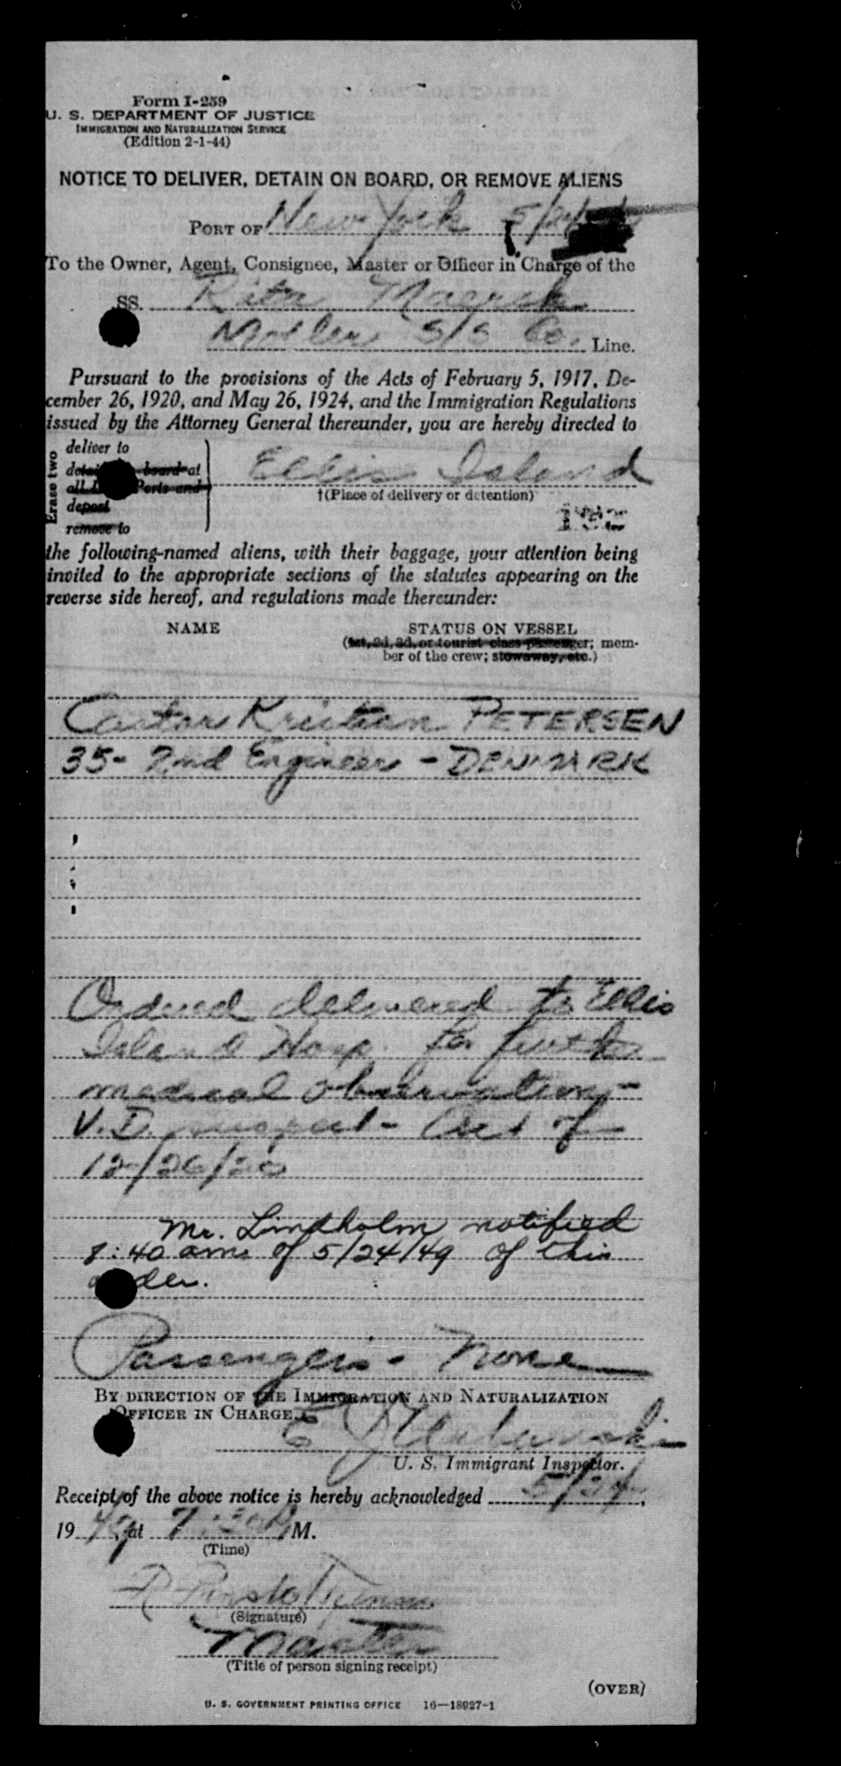 Form I-259
U. S. DEPARTMENT OF JUSTICE
IMMIGRATION AND NATURALIZATION SERVICE
(Edition 2-1-44)
NOTICE TO DELIVER, DETAIN ON BOARD, OR REMOVE ALIENS
PORT OF New York 5/24
To the Owner, Agent, Consignee, Master or Officer in Charge of the
SS. Rita Maersk
Moller S/S Co. Line.
Pursuant to the provisions of the Acts of February 5, 1917, De-
cember 26, 1920, and May 26, 1924, and the Immigration Regulations
issued by the Attorney General thereunder, you are hereby directed to
Erase two
deliver to
board at
Ports and
deport
remove to
Ellis Island
†(Place of delivery or detention)
the following-named aliens, with their baggage, your attention being
invited to the appropriate sections of the statutes appearing on the
reverse side hereof, and regulations made thereunder:
NAME STATUS ON VESSEL
(1st, 2d, 3d, or tourist class passenger; mem-
ber of the crew; stowaway, etc.)
Kristian PETERSEN
35- 2nd Engineer - DENMARK
Ordered delivered to Ellis
Island Hosp. for further
medical observation -
V.D. suspect - Act of
12/26/20
Mr. Lindholm notified
8:40 am of 5/24/49 of this
order.
Passengers - None
BY DIRECTION OF THE IMMIGRATION AND NATURALIZATION
OFFICER IN CHARGE.
U. S. Immigrant Inspector.
Receipt of the above notice is hereby acknowledged 5/24,
1949, at M.
(Time)
(Signature)
Master
(Title of person signing receipt)
(OVER)
U. S. GOVERNMENT PRINTING OFFICE 16—18927-1